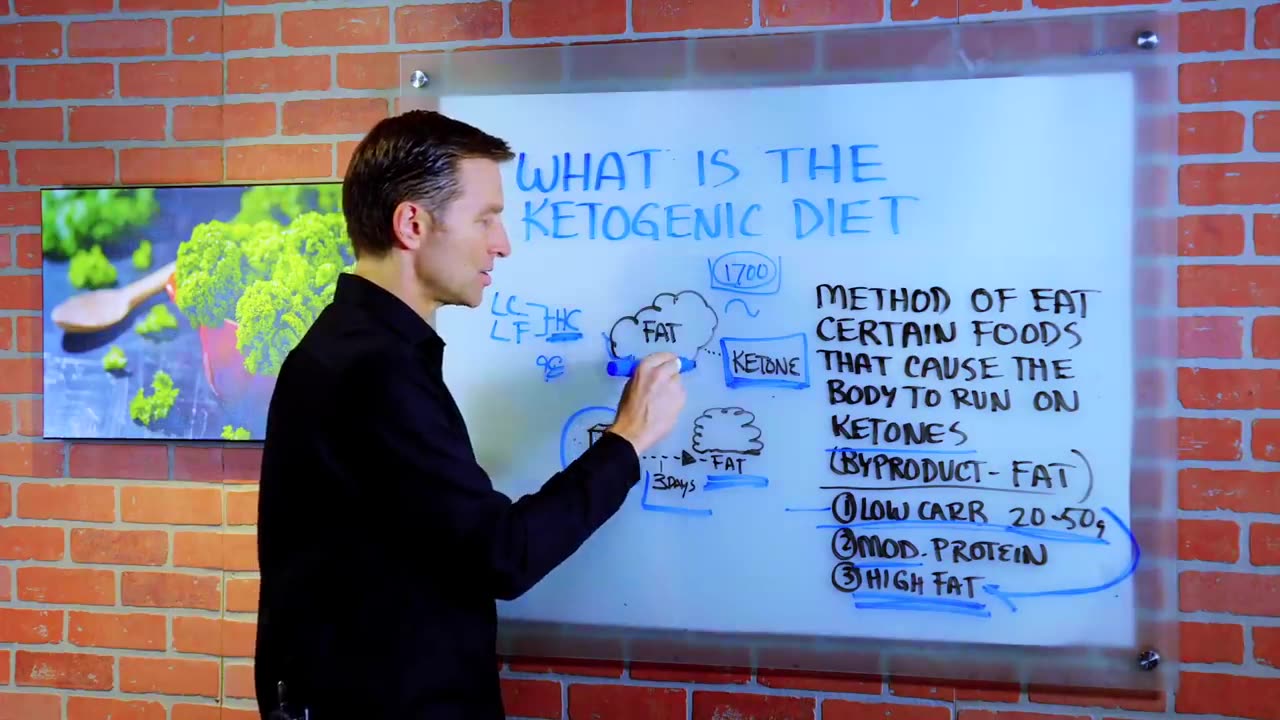 WHAT IS THE
KETOGENIC DIET
1700
LC
LF } HC
FAT
KETONE
3 DAYS
FAT
METHOD OF EAT
CERTAIN FOODS
THAT CAUSE THE
BODY TO RUN ON
KETONES
(BYPRODUCT - FAT)
① LOW CARB 20-50g
② MOD. PROTEIN
③ HIGH FAT